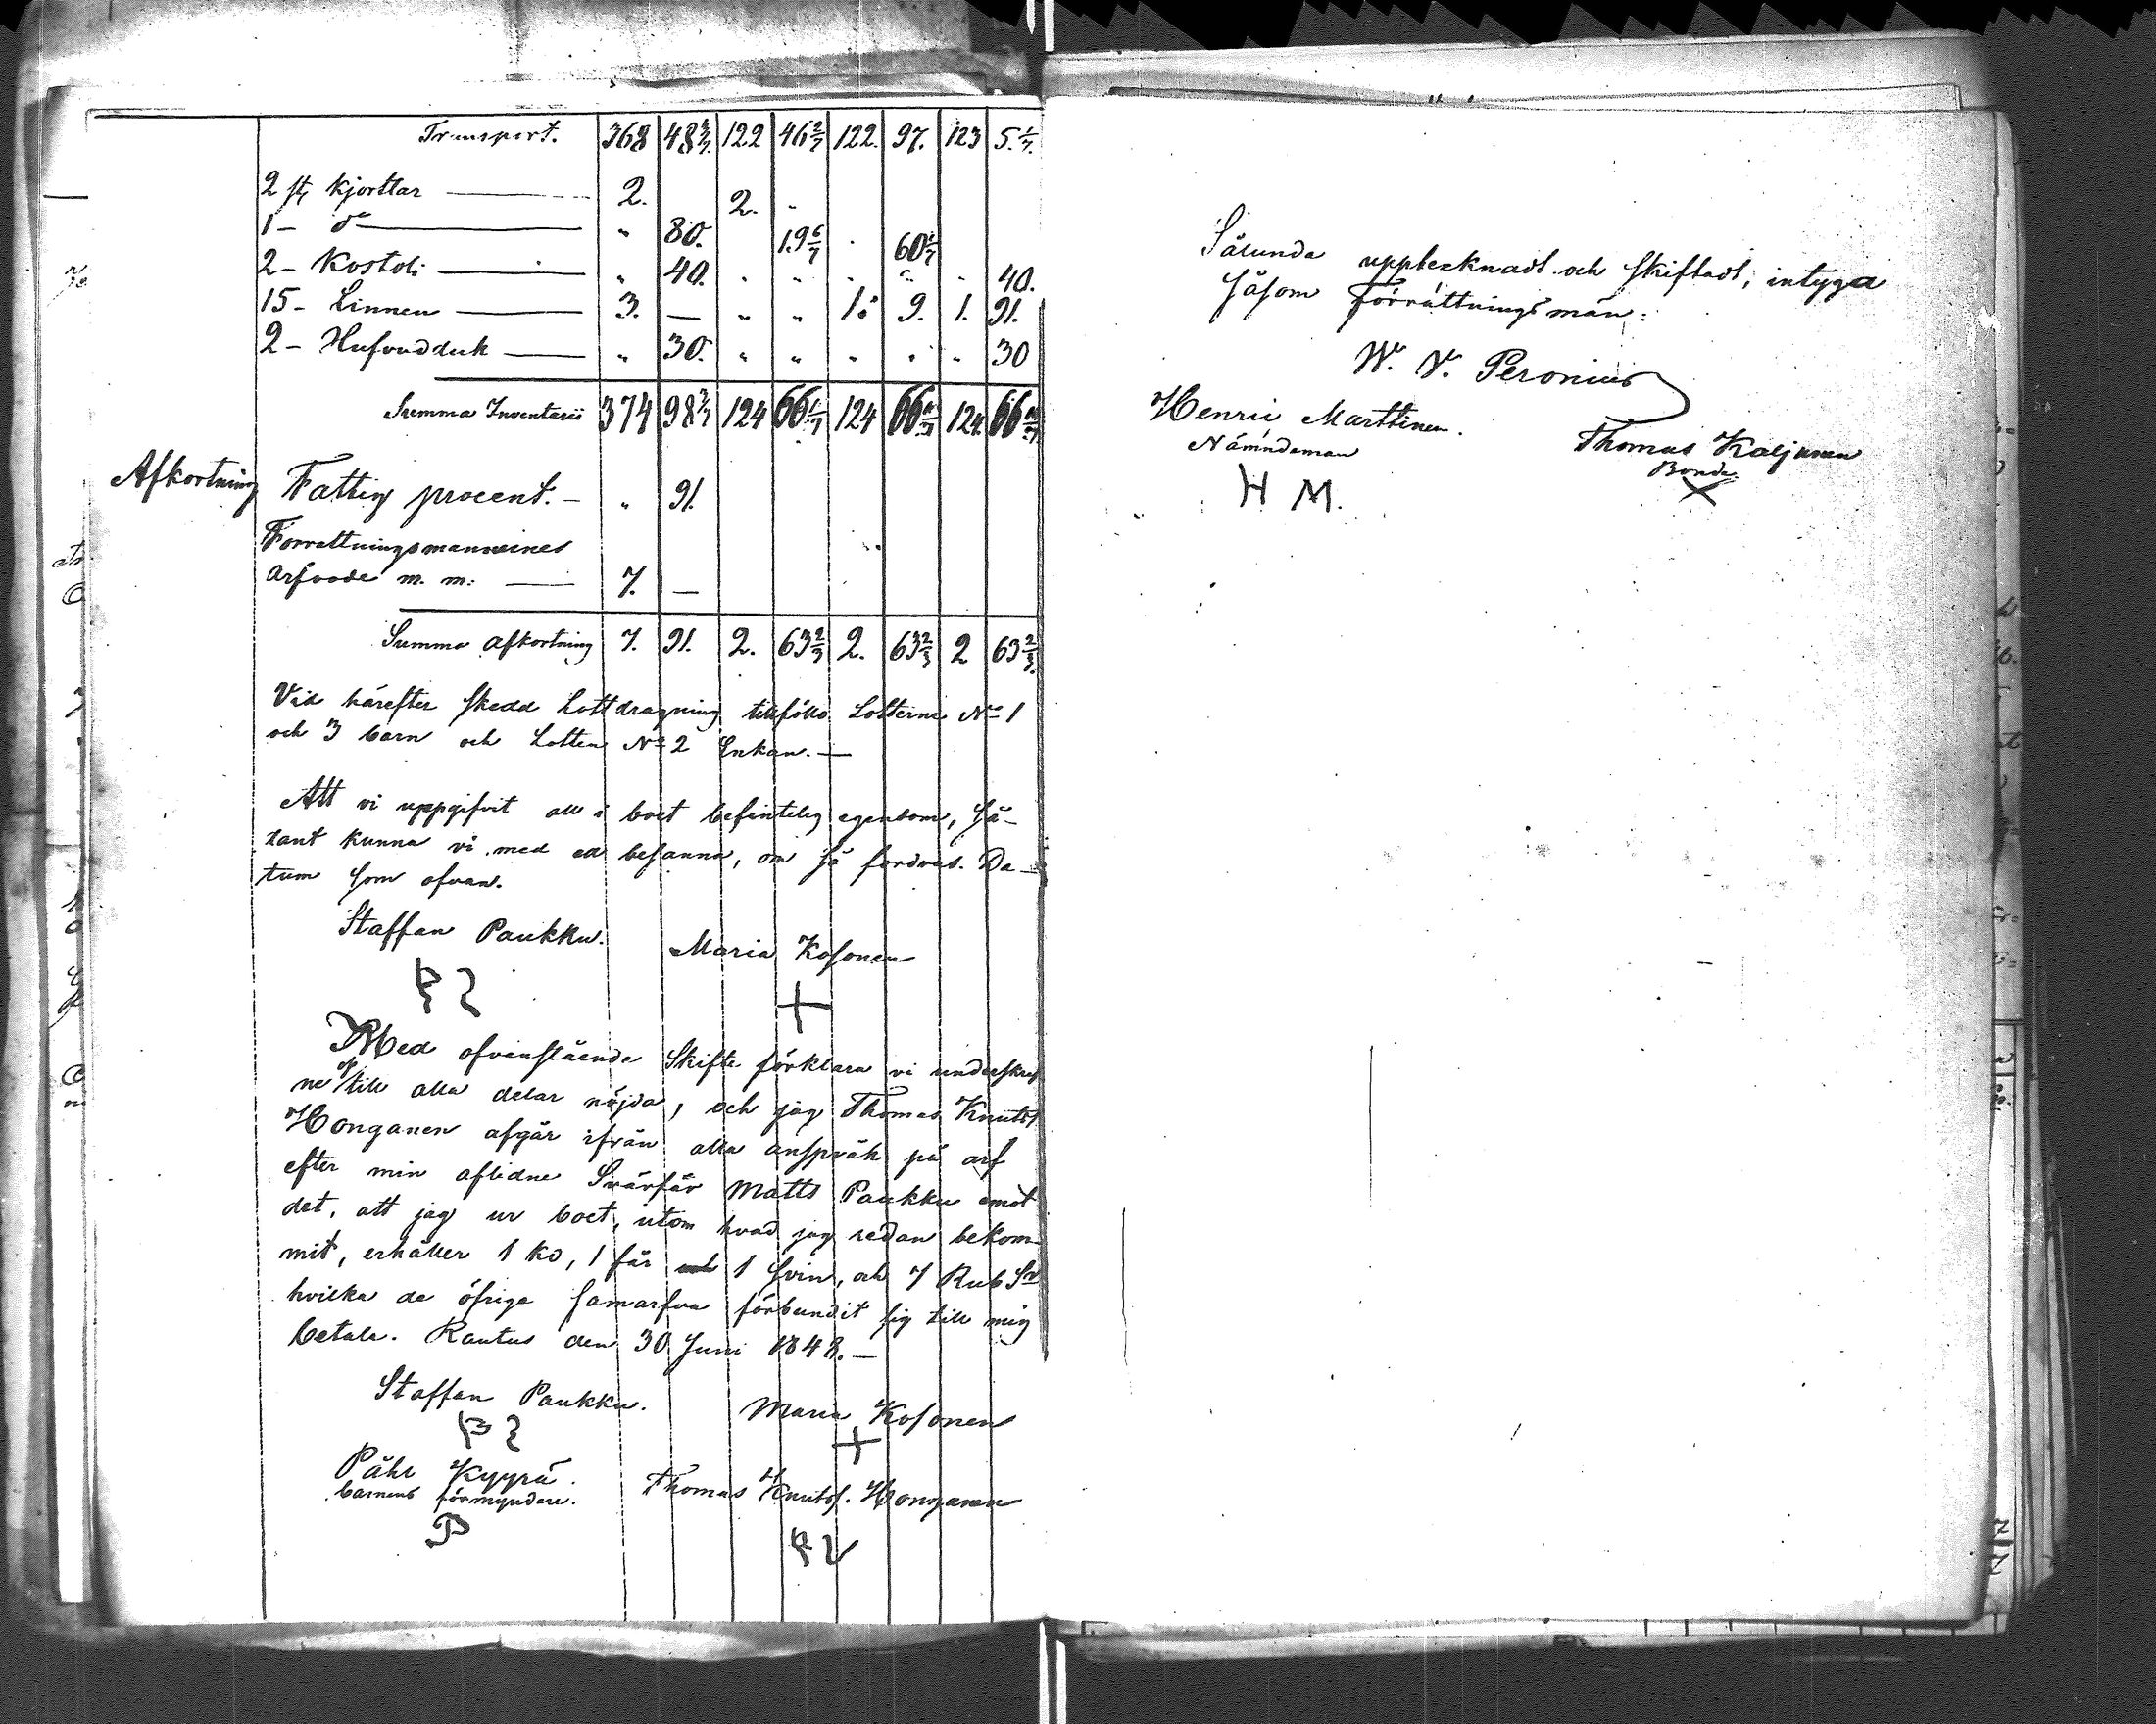 Transport. 368 48 3/7. 122 46 2/7 122. 97. 123 5. 1/7.
2 st kjortlar — 2. 2. "
1 – do — " 80. 19 6/7 . 60 1/7
2 – Kostoli — " 40. " " " " " 40.
15 – Linnen — 3. — " " 1. 9. 1. 91.
2 – Hufvudduk — " 30. " " " " " 30
Summa Inventarii 374 98 3/7 124 66 1/7 124 66 1/7 124 66 1/7
Afkortning Fattig procent. – " 91.
Förrättningsmännernes
arfvode m. m: — 7. —
Summa afkortning 7. 91. 2. 63 2/3 2. 63 2/3 2 63 2/3.
Vid härefter skedd Lottdragning tillföllo Lotterne No 1
och 3 barn och Lotten No 2 Enkan. —
Att vi uppgifvit all i boet befintelig egendom, så-
dant kunna vi med ed besanna, om så fordras. Da-
tum som ofvan.
Staffan Paukku. Maria Kosonen
Med ofvanstående Skifte förklara vi underskref
ne till alla delar nöjda, och jag Thomas Knutss
Honganen afgår ifrån alla anspråk på arf
efter min aflidne Svärfär Matts Paukku emot
det, att jag ur boet, utom hvad jag redan bekom-
mit, erhåller 1 ko, 1 får 1 svin, och 7 Rub Sr
hvilka de öfrige samarfva förbundit sig till mig
betala. Rautus den 30 Juni 1848. —
Staffan Paukku. Maria Kosonen
Pähr Kyyrä. Thomas Knutss. Honganen
barnens förmyndare.
P
Sålunda upptecknadt och skiftadt, intyga
såsom förrättningsmän:
W. V. Peronius
Henric Marttinen. Thomas Kaljunen
Nämndeman Bonde
H M.